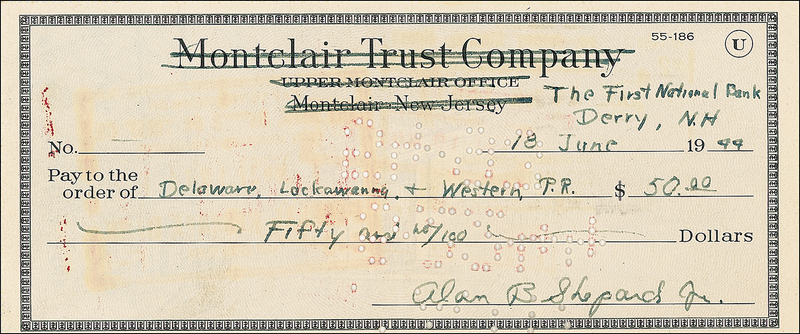 55-186
U
Montclair Trust Company
UPPER MONTCLAIR OFFICE
Montclair New Jersey
The First National Bank
Derry, N.H
No. 13 June 1944
Pay to the
order of Delaware, Lackawanna, + Western, P.R. $ 50.00
Fifty and no/100 Dollars
Alan B Shepard Jr.